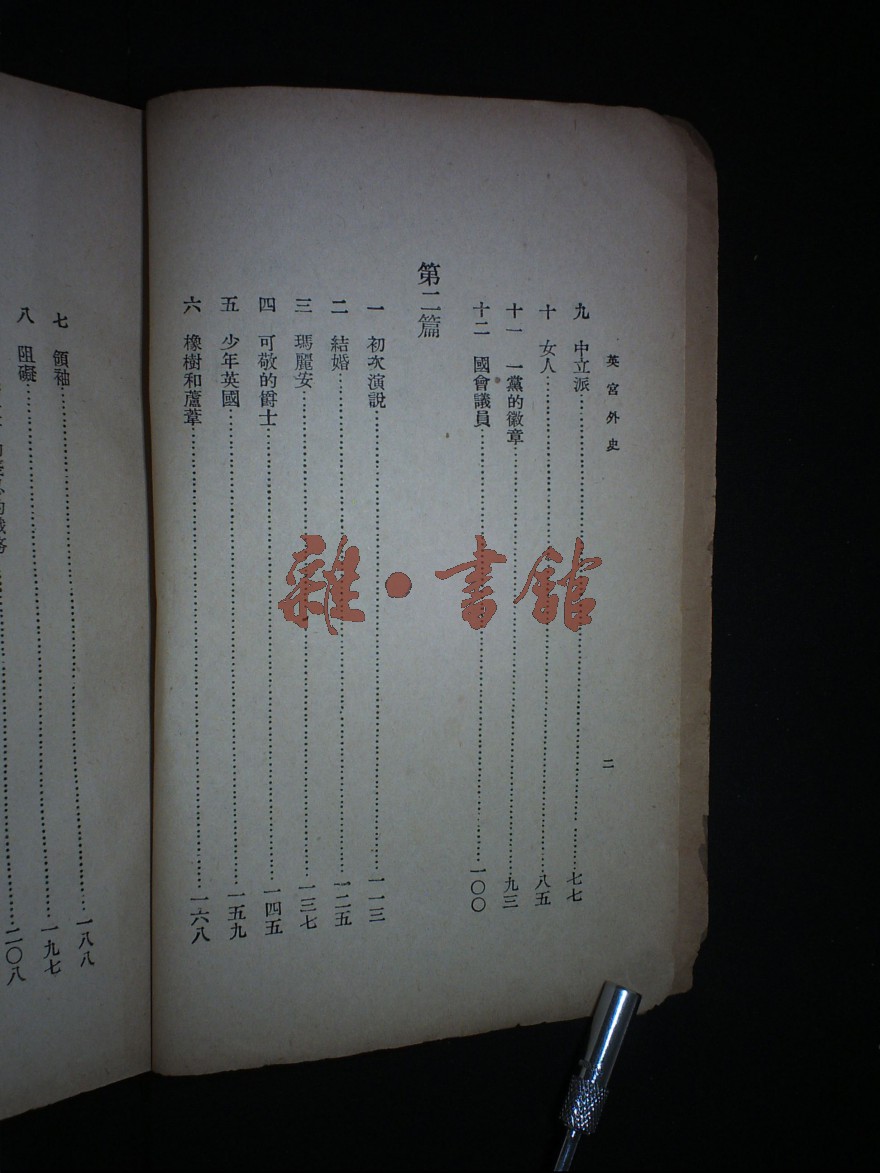 英宮外史
二
九 中立派 七七
十 女人 八五
十一 一黨的徽章 九三
十二 國會議員 一〇〇
第二篇
一 初次演說 一一三
二 結婚 一二五
三 瑪麗安 一三七
四 可敬的爵士 一四五
五 少年英國 一五九
六 橡樹和蘆葦 一六八
七 領袖 一八八
八 阻礙 一九七
二〇八
雜·書館